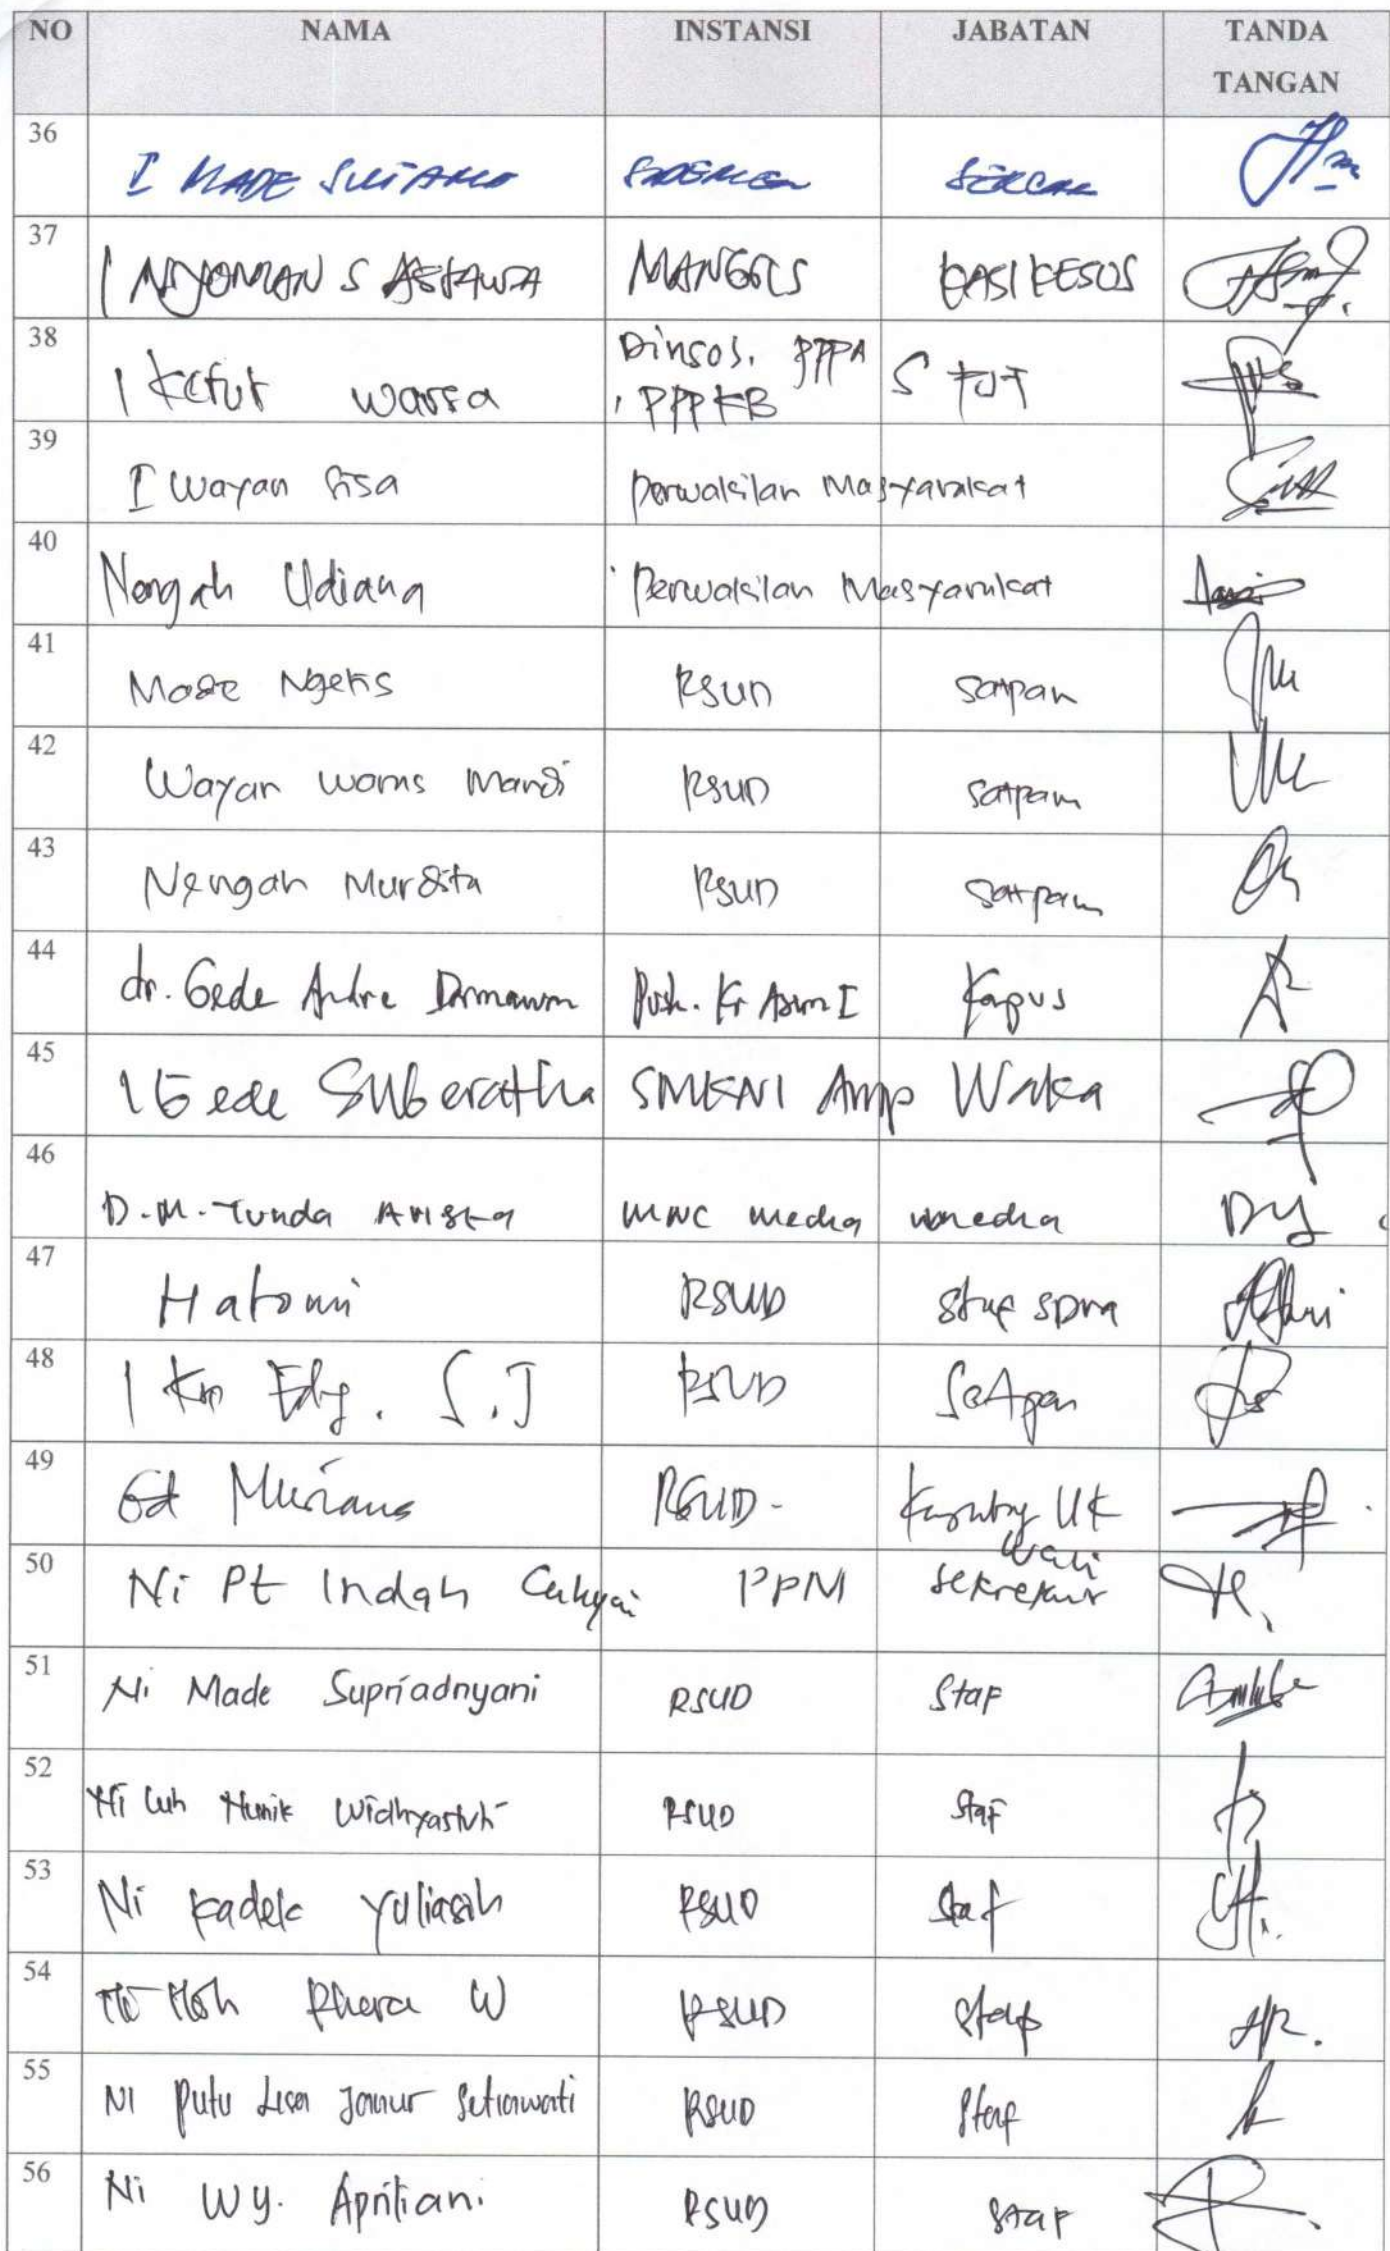 NO NAMA INSTANSI JABATAN TANDA
TANGAN
36
I MADE
37
I NYOMAN S ASTAWA MANGGIS KASI KESOS
38
Dinsos. PPPA
I Ketut Warsa
, PPPKB
39
I Wayan Sisa Perwakilan Masyarakat
40
Nengah Udiana Perwakilan Masyarakat
41
Made RSUD Satpam
42
Wayan RSUD Satpam
43
Nengah Murdita RSUD Satpam
44
dr. Gede Andre Darmawan Pusk. Kr Asem I Kapus
45
I Gede Suberatha SMKN1 Amp Waka
46
D.M. Tunda MNC media
47
RSUD Staf SDM
48
I RSUD Satpam
49
Gd Muriana RSUD. UK
50
Wakil
Ni Pt Indah Cahyani PPM Sekretaris
51
Ni Made Supriadnyani RSUD Staf
52
Ni Luh Nunik Widhyastuti RSUD Staf
53
Ni Kadek Yuliasih RSUD Staf
54
W RSUD Staf
55
Ni Putu Setiawati RSUD Staf
56
Ni Wy. Apriliani. RSUD Staf